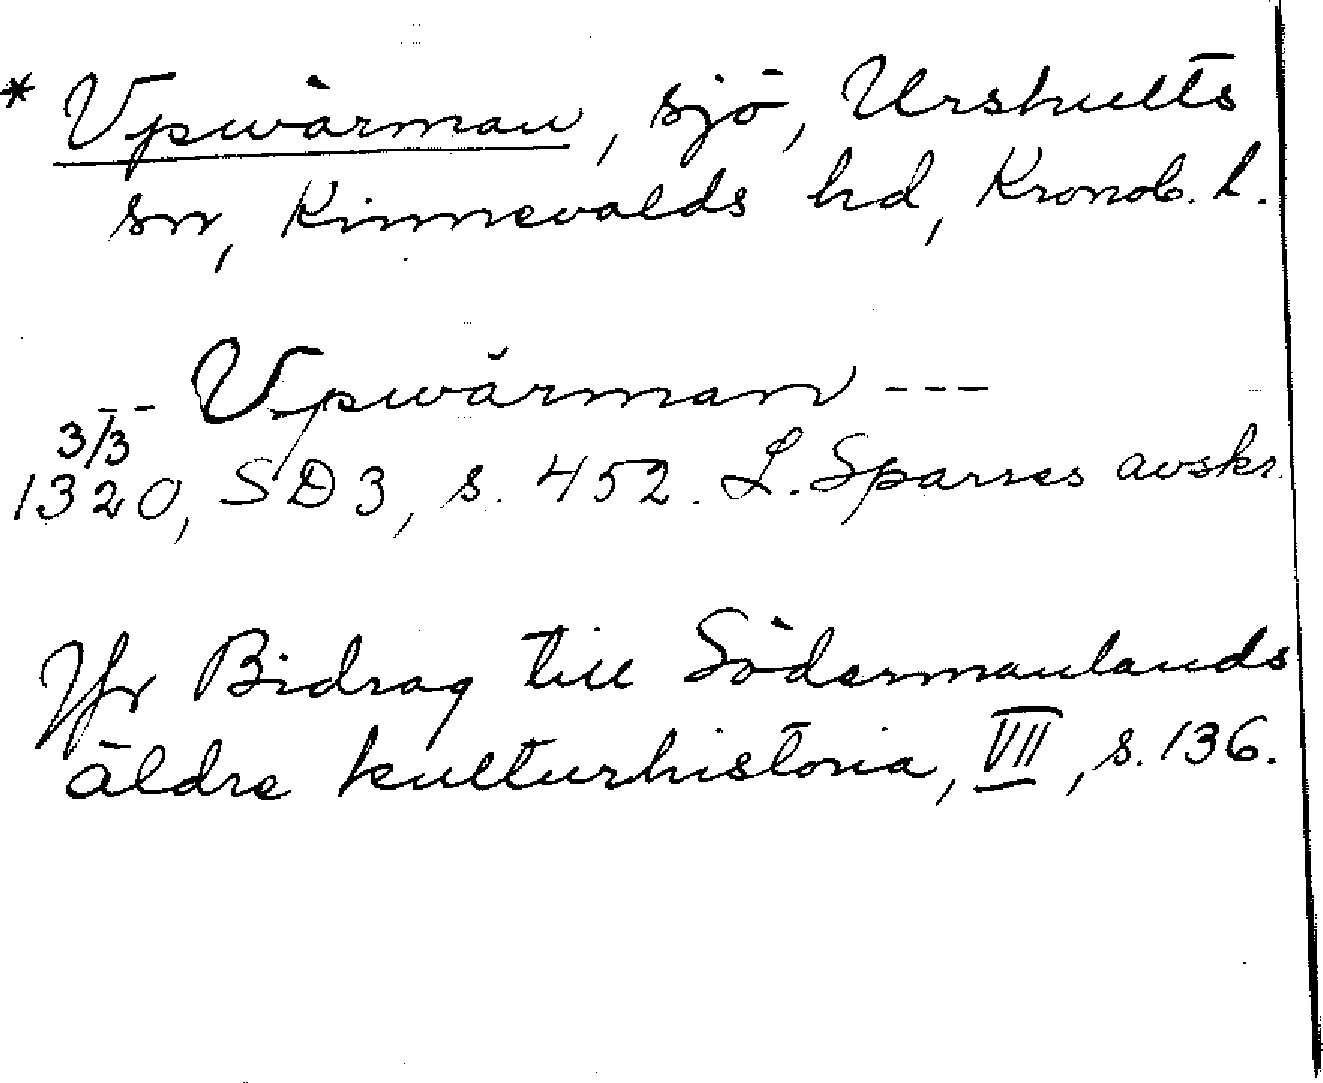 * Vpwärman, sjö, Urshults
sn, Kinnevalds hd, Kronob. l.
-- Vpwärman ---
3/3
1320, SD3, s. 452. L. Sparres avskr.
Jfr Bidrag till Södermanlands
äldre kulturhistoria, VII, s. 136.